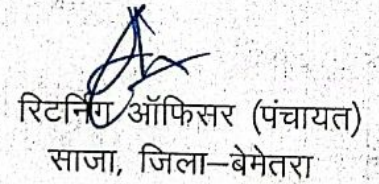 रिटर्निंग ऑफिसर (पंचायत)
साजा, जिला–बेमेतरा